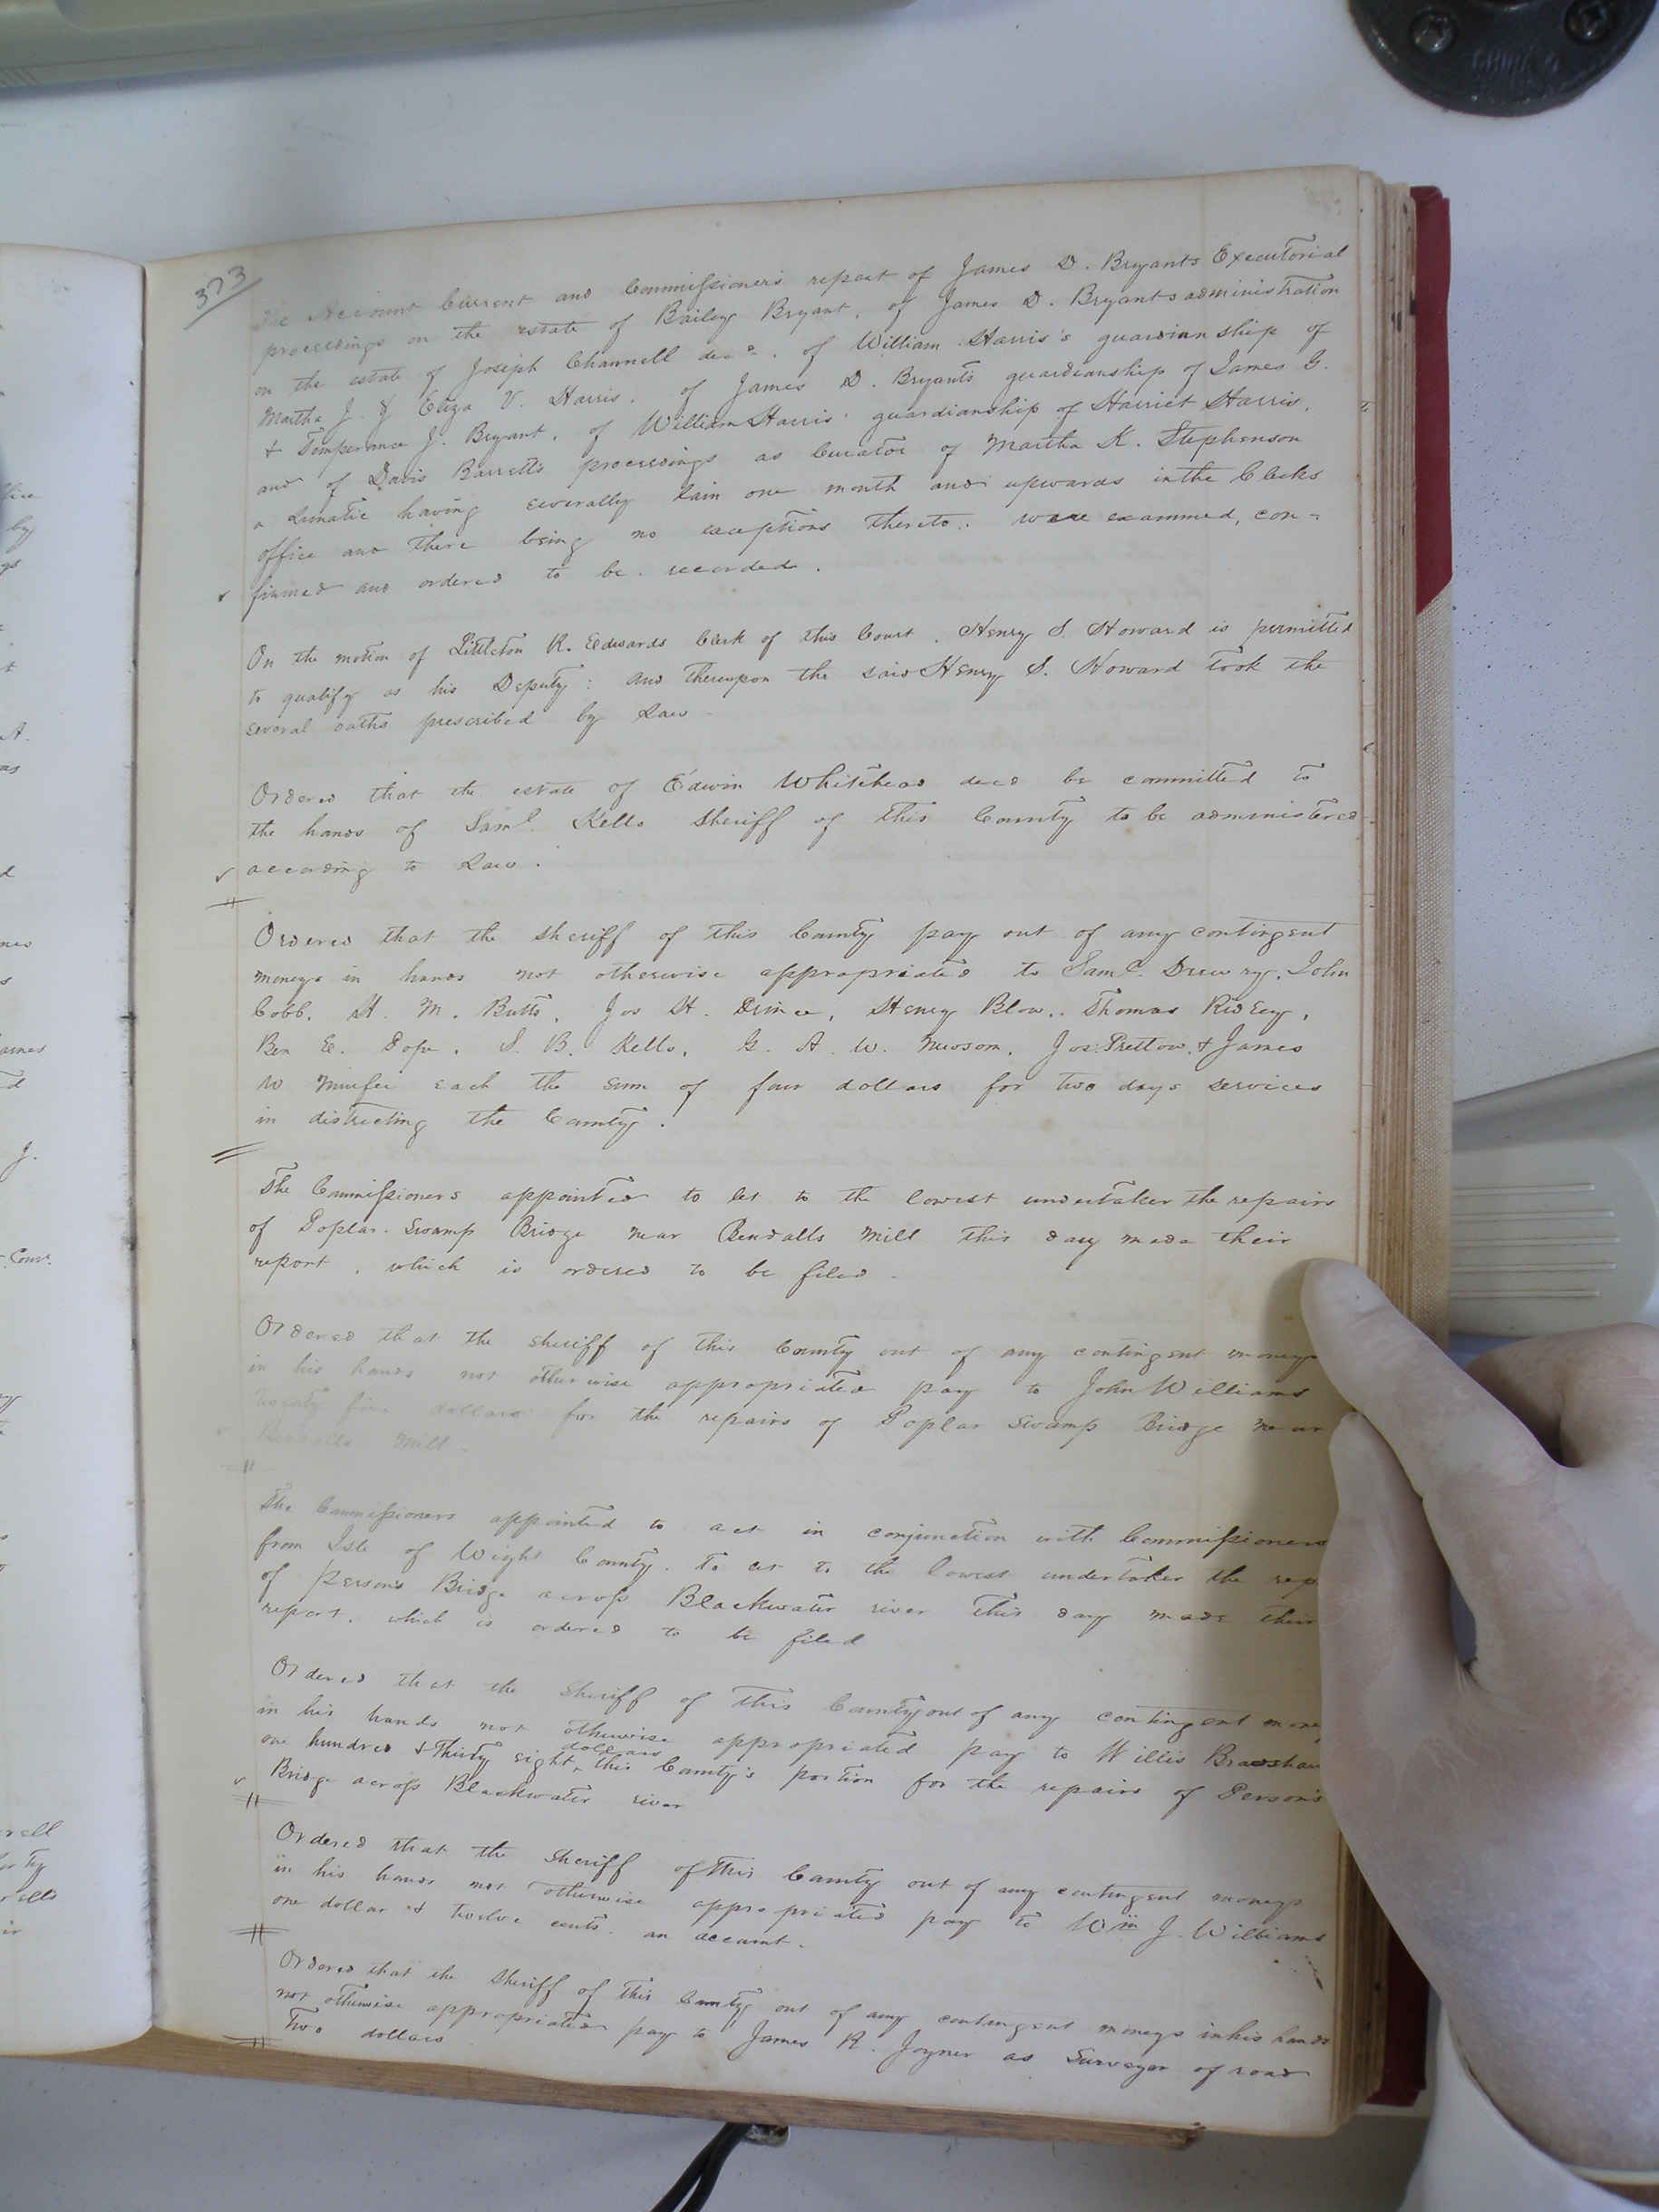 373
The Account Current and Commissioners report of James D. Bryants Executorial
proceedings on the estate of Bailey Bryant, of James D. Bryants administration
on the estate of Joseph Channell decd. of William Harris's guardianship of
Martha J. & Eliza V. Harris, of James D. Bryants guardianship of James G.
& Temperance J. Bryant, of William Harris' guardianship of Harriet Harris,
and of Davis Barretts proceedings as Curator of Martha K. Stephenson
a Lunatic having severally lain one month and upwards in the Clerks
office and there being no exceptions thereto.. were examined, con-
firmed and ordered to be recorded.
On the motion of Littleton R. Edwards Clerk of this Court. Henry S. Howard is permitted
to qualify as his Deputy: and thereupon the said Henry S. Howard took the
several oaths prescribed by Law
Ordered that the estate of Edwin Whitehead decd be committed to
the hands of Saml. Kello Sheriff of this County to be administered
according to Law.
Ordered that the sheriff of this County pay out of any contingent
moneys in hands not otherwise appropriated to Saml. Drewry, John
Cobb, H. M. Butts, Jos H. Prince, Henry Blow, Thomas Ridley,
Ben E. Pope, S. B. Kello, G. A. W. Newsom, Jos: Pretlow, & James
W Murfee each the sum of four dollars for two days services
in districting the County.
The Commissioners appointed to let to the lowest undertaker the repairs
of Poplar Swamp Bridge near Bendalls Mill this day made their
report, which is ordered to be filed.
Ordered that the sheriff of this County out of any contingent moneys
in his hands not otherwise appropriated pay to John Williams
twenty five dollars for the repairs of Poplar Swamp Bridge near
Bendalls Mill.
The Commissioners appointed to act in conjunction with Commissioners
from Isle of Wight County. to let to the lowest undertaker the rep
of Person's Bridge across Blackwater river this day made their
report, which is ordered to be filed
Ordered that the Sheriff of this County out of any contingent mone
in his hands not otherwise appropriated pay to Willis Bradshaw
one hundred & thirty eight dollars this County's portion for the repairs of Person's
Bridge across Blackwater river
Ordered that the Sheriff of this County out of any contingent moneys
in his hands not otherwise appropriated pay to Wm J. Williams
one dollar & twelve cents. an account.
Ordered that the Sheriff of this County out of any contingent moneys in his hands
not otherwise appropriated pay to James R. Joyner as Surveyor of road
two dollars